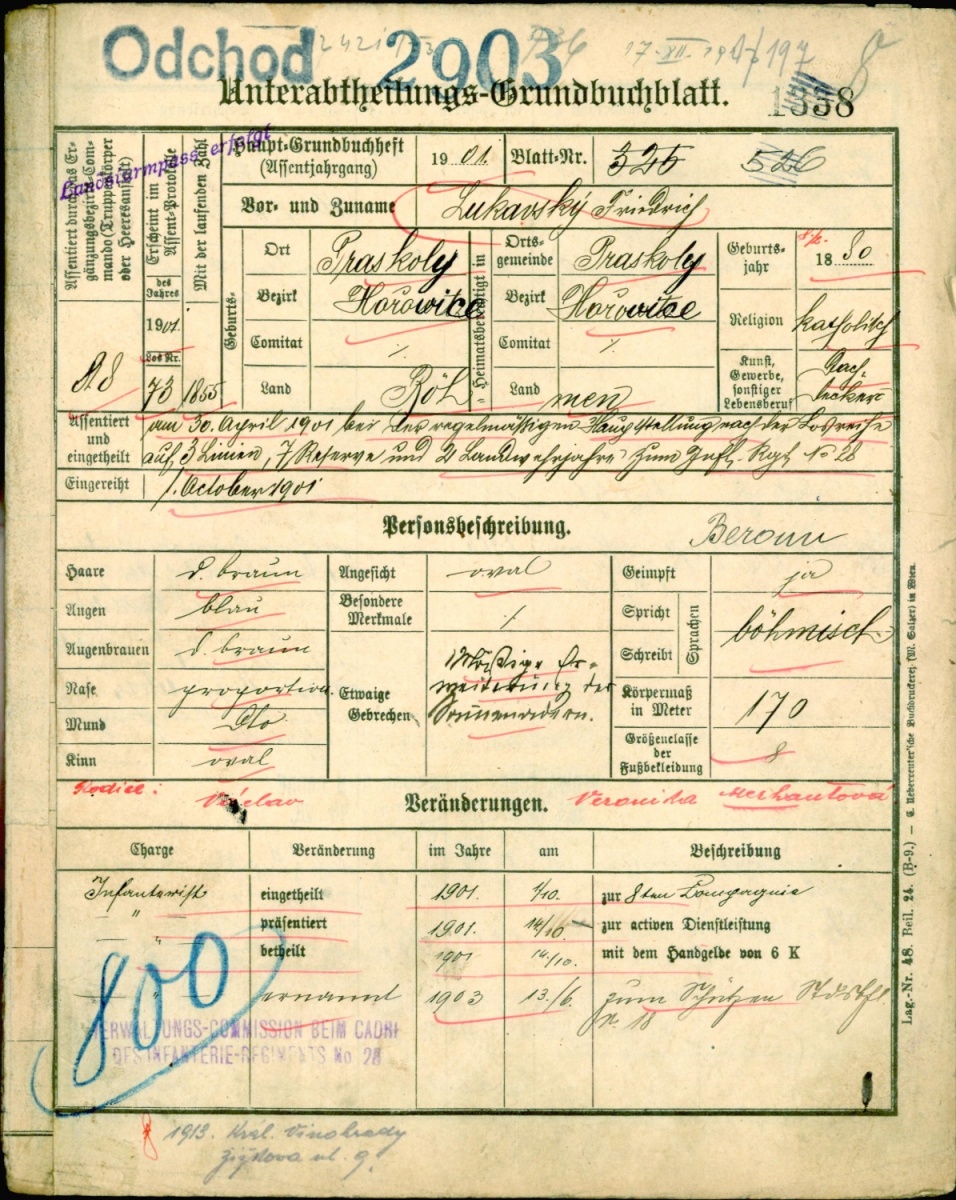 Odchod 2903
17. XII. 1917
8
Unterabtheilungs-Grundbuchblatt.
1338
Landsturmpass erfolgt
Assentiert durch das Ergänzungsbezirks-Commando (Truppenkörper oder Heeresanstalt)
Erscheint im Assent-Protokolle
des Jahres
1901
Los Nr.
73
Mit der laufenden Zahl
1855
28
Haupt-Grundbuchheft (Assentjahrgang)
1901.
Blatt-Nr.
325
526
Vor- und Zuname
Lukavský Friedrich
Geburts-
Ort
Praskoly
Bezirk
Hořowitce
Comitat
Land
Böh
Heimatsberechtigt in
Orts-gemeinde
Praskoly
Bezirk
Hořowitce
Comitat
Land
men
Geburts-jahr
1880
Religion
katholisch
Kunst, Gewerbe, sonstiger Lebensberuf
Dach-
decker
Assentiert und eingetheilt
am 30. April 1901 bei der regelmäßigen Hauptstellung nach der Losreihe
auf 3 Linien, 7 Reserve und 2 Landwehrjahre zum Inft. Rgt. No 28
Eingereiht
1. October 1901
Personsbeschreibung.
Beroun
Haare
d. braun
Augen
blau
Augenbrauen
d. braun
Nase
proportion.
Mund
dto
Kinn
oval
Angesicht
oval
Besondere Merkmale
Etwaige Gebrechen
Mäßige Er-
weiterung der
Geimpft
ja
Spricht
Schreibt
Sprachen
böhmisch
Körpermaß in Meter
170
Größenclasse der Fußbekleidung
8
Rodiče:
Václav
Veränderungen.
Veronika
Charge
Veränderung
im Jahre
am
Beschreibung
Infanterist
eingetheilt
1901.
1/10.
zur 8ten Compagnie
"
präsentiert
1901.
14/10.
zur activen Dienstleistung
"
betheilt
1901
14/10.
mit dem Handgelde von 6 K
"
ernannt
1903
13/6.
zum Schützen
800
VERWALTUNGS-COMMISSION BEIM CADRE
DES INFANTERIE-REGIMENTS No 28
1913. Král. Vinohrady
Žižkova ul. 9.
Lag.-Nr. 48. Beil. 24. (B-9.) — C. Ueberreuter'sche Buchdruckerei (M. Salzer) in Wien.